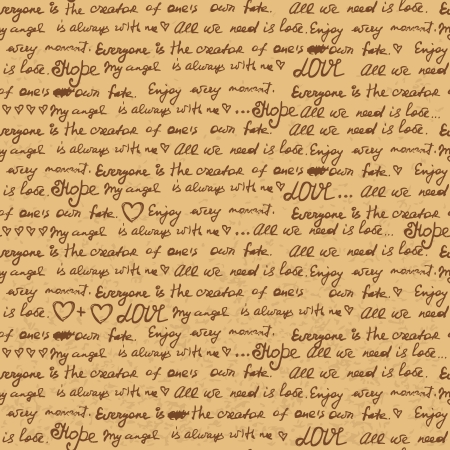 everyone is the creator of one's own fate. All we need is love. E
my angel is always with me ♡ All we need is love. Enjoy every moment. M
every moment. Everyone is the creator of one's own fate. ♡ Enjoy
is love. Hope My angel is always with me ♡ LOVE All we need
of one's own fate. Enjoy every moment. Everyone is the creator
♡♡♡♡ My angel is always with me ♡ ... Hope All we need is love...
everyone is the creator of one's own fate. All we need is love. E
my angel is always with me ♡ All we need is love. Enjoy every moment. M
every moment. Everyone is the creator of one's own fate. ♡ Enjoy
is love. Hope My angel is always with me ♡ LOVE... All we need
of one's own fate. ♡ Enjoy every moment. Everyone is the creator
♡♡♡♡ My angel is always with me ♡ ... All we need is love... Hope
everyone is the creator of one's own fate. All we need is love. E
my angel is always with me ♡ All we need is love. Enjoy every moment. M
every moment. Everyone is the creator of one's own fate. ♡ Enjoy
is love. ♡ + ♡ LOVE My angel is always with me ♡ All we need
of one's own fate. Enjoy every moment. Everyone is the creator
♡♡♡♡ My angel is always with me ♡ ... Hope All we need is love...
everyone is the creator of one's own fate. All we need is love. E
my angel is always with me ♡ All we need is love. Enjoy every moment. M
every moment. Everyone is the creator of one's own fate. ♡ Enjoy
is love. Hope My angel is always with me ♡ LOVE All we need